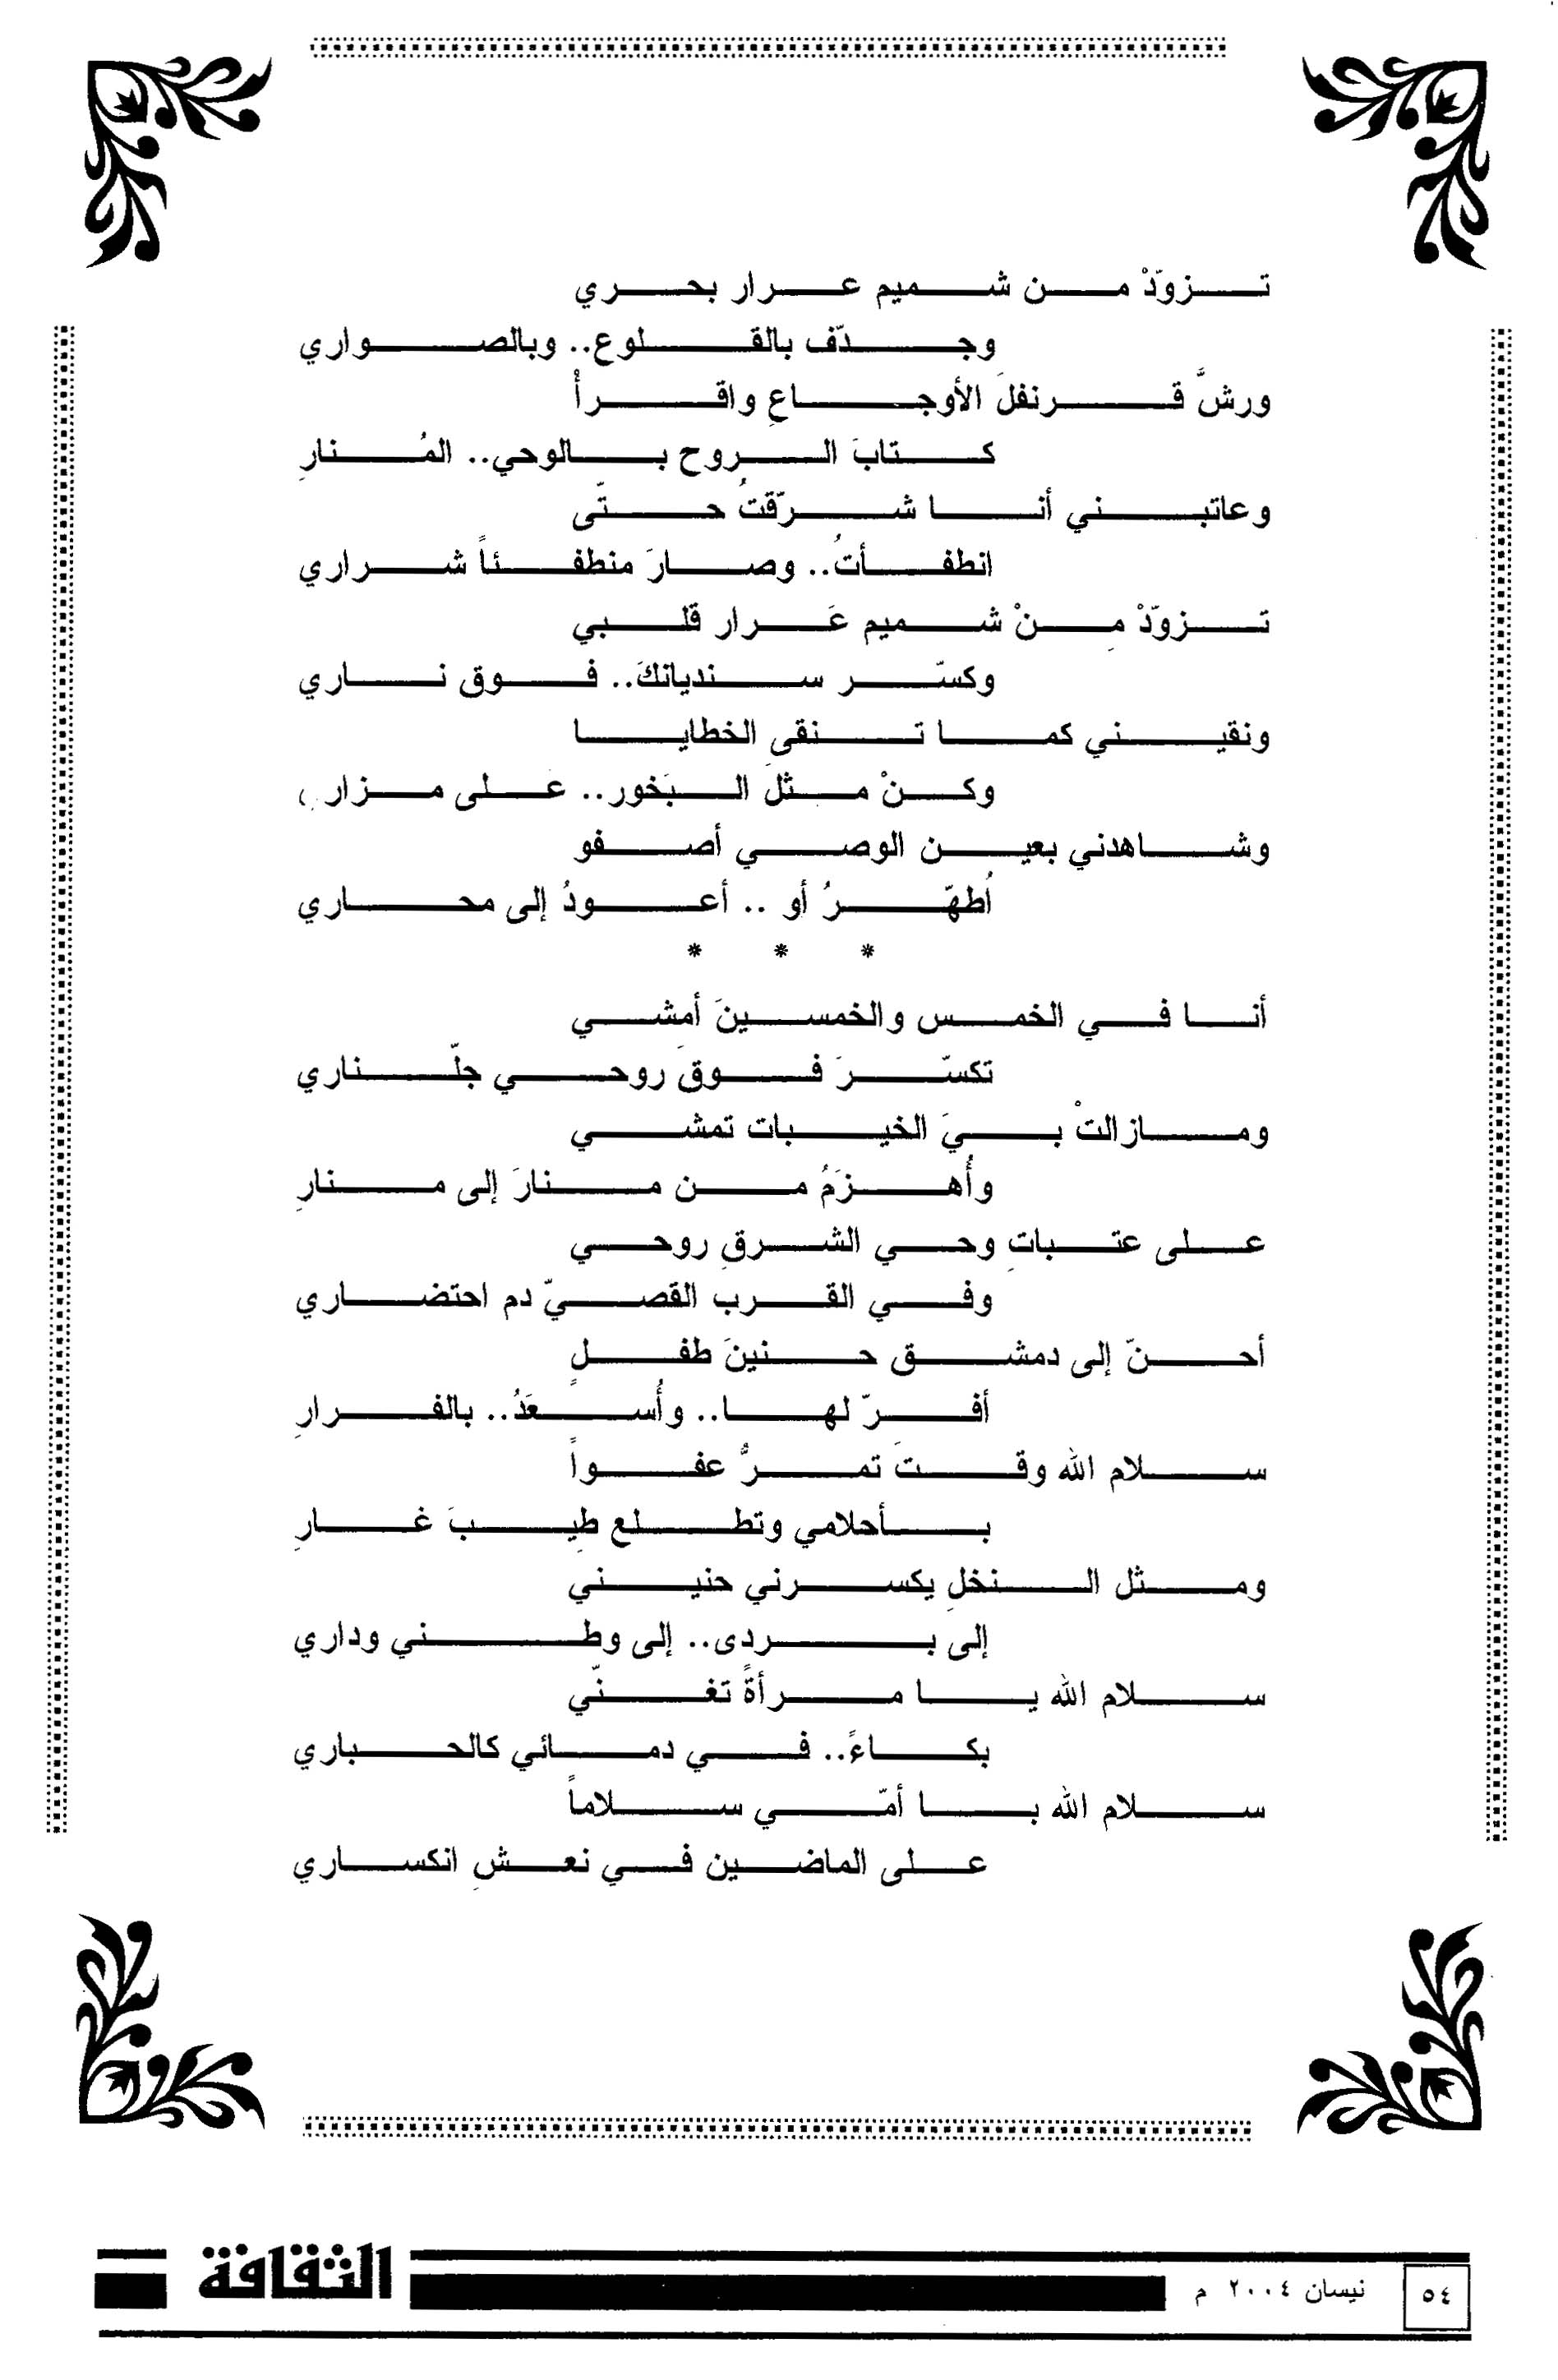 تزوّدْ من شميم عرار بحري
وجدّف بالقلوع.. وبالصواري
ورشَّ قرنفلَ الأوجاعِ واقرأْ
كتابَ الروح بالوحي.. المُنارِ
وعاتبني أنا شرّقتُ حتّى
انطفأتُ.. وصارَ منطفئاً شراري
تزوّدْ مِنْ شميم عَرار قلبي
وكسّر سنديانكَ.. فوق ناري
ونقيني كما تنقى الخطايا
وكنْ مثلَ البَخور.. عَلى مزاري
وشاهدني بعين الوصي أصفو
أُطهّرُ أو .. أعودُ إلى محاري
* * *
أنا في الخمس والخمسينَ أمشي
تكسّرَ فوقَ روحي جلّناري
ومازالتْ بيَ الخيبات تمشي
وأُهزَمُ من منارَ إلى منارِ
على عتباتِ وحي الشرقِ روحي
وفي القرب القصيّ دم احتضاري
أحنّ إلى دمشق حنينَ طفلٍ
أفرّ لها.. وأُسعَدُ.. بالفرارِ
سلام الله وقتَ تمرُّ عفواً
بأحلامي وتطلع طِيبَ غارِ
ومثل النخلِ يكسرني حنيني
إلى بردى.. إلى وطني وداري
سلام الله يا مرأةً تغنّي
بكاءً.. في دمائي كالحباري
سلام الله يا أمّي سلاماً
على الماضين في نعشِ انكساري
٥٤ نيسان ٢٠٠٤ م الثقافة